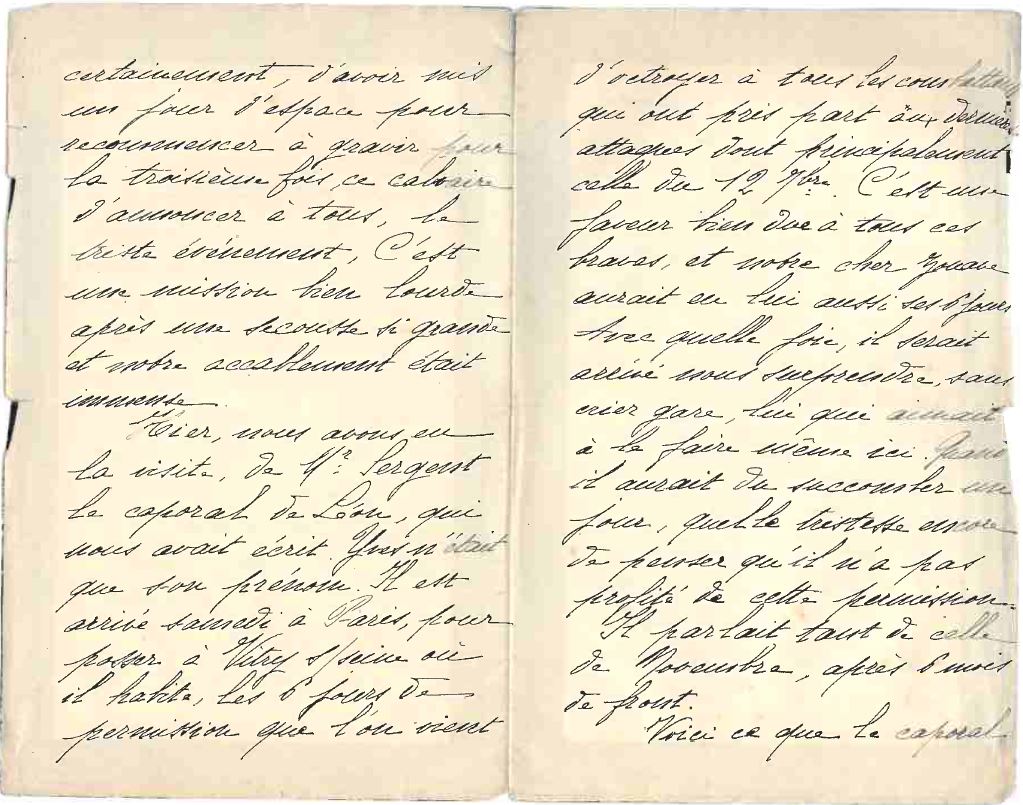 certainement, d'avoir mis
un jour d'espace pour
recommencer à gravir pour
la troisième fois, ce calvaire
d'annoncer à tous, le
triste événement, C'est
une mission bien lourde
après une secousse si grande
et notre accablement était
immense.
Hier, nous avons eu
la visite, de Mr. Sergent
le caporal de Léon, qui
nous avait écrit. Yves n'était
que son prénom. Il est
arrivé samedi à Paris, pour
passer à Vitry s/seine où
il habite, les 6 jours de
permission que l'on vient
d'octroyer à tous les combattants
qui ont pris part aux derniers
attaques dont principalement
celle du 12 7bre. C'est une
faveur bien due à tous ces
braves, et notre cher Zouave
aurait eu lui aussi ses 6 jours
Avec quelle joie, il serait
arrivé nous surprendre, sans
crier gare, lui qui aimait
à le faire même ici. Quand
il aurait du succomber un
jour, quelle tristesse encore
de penser qu'il n'a pas
profité de cette permission.
Il parlait tant de celle
de Novembre, après 6 mois
de front.
Voici ce que le caporal